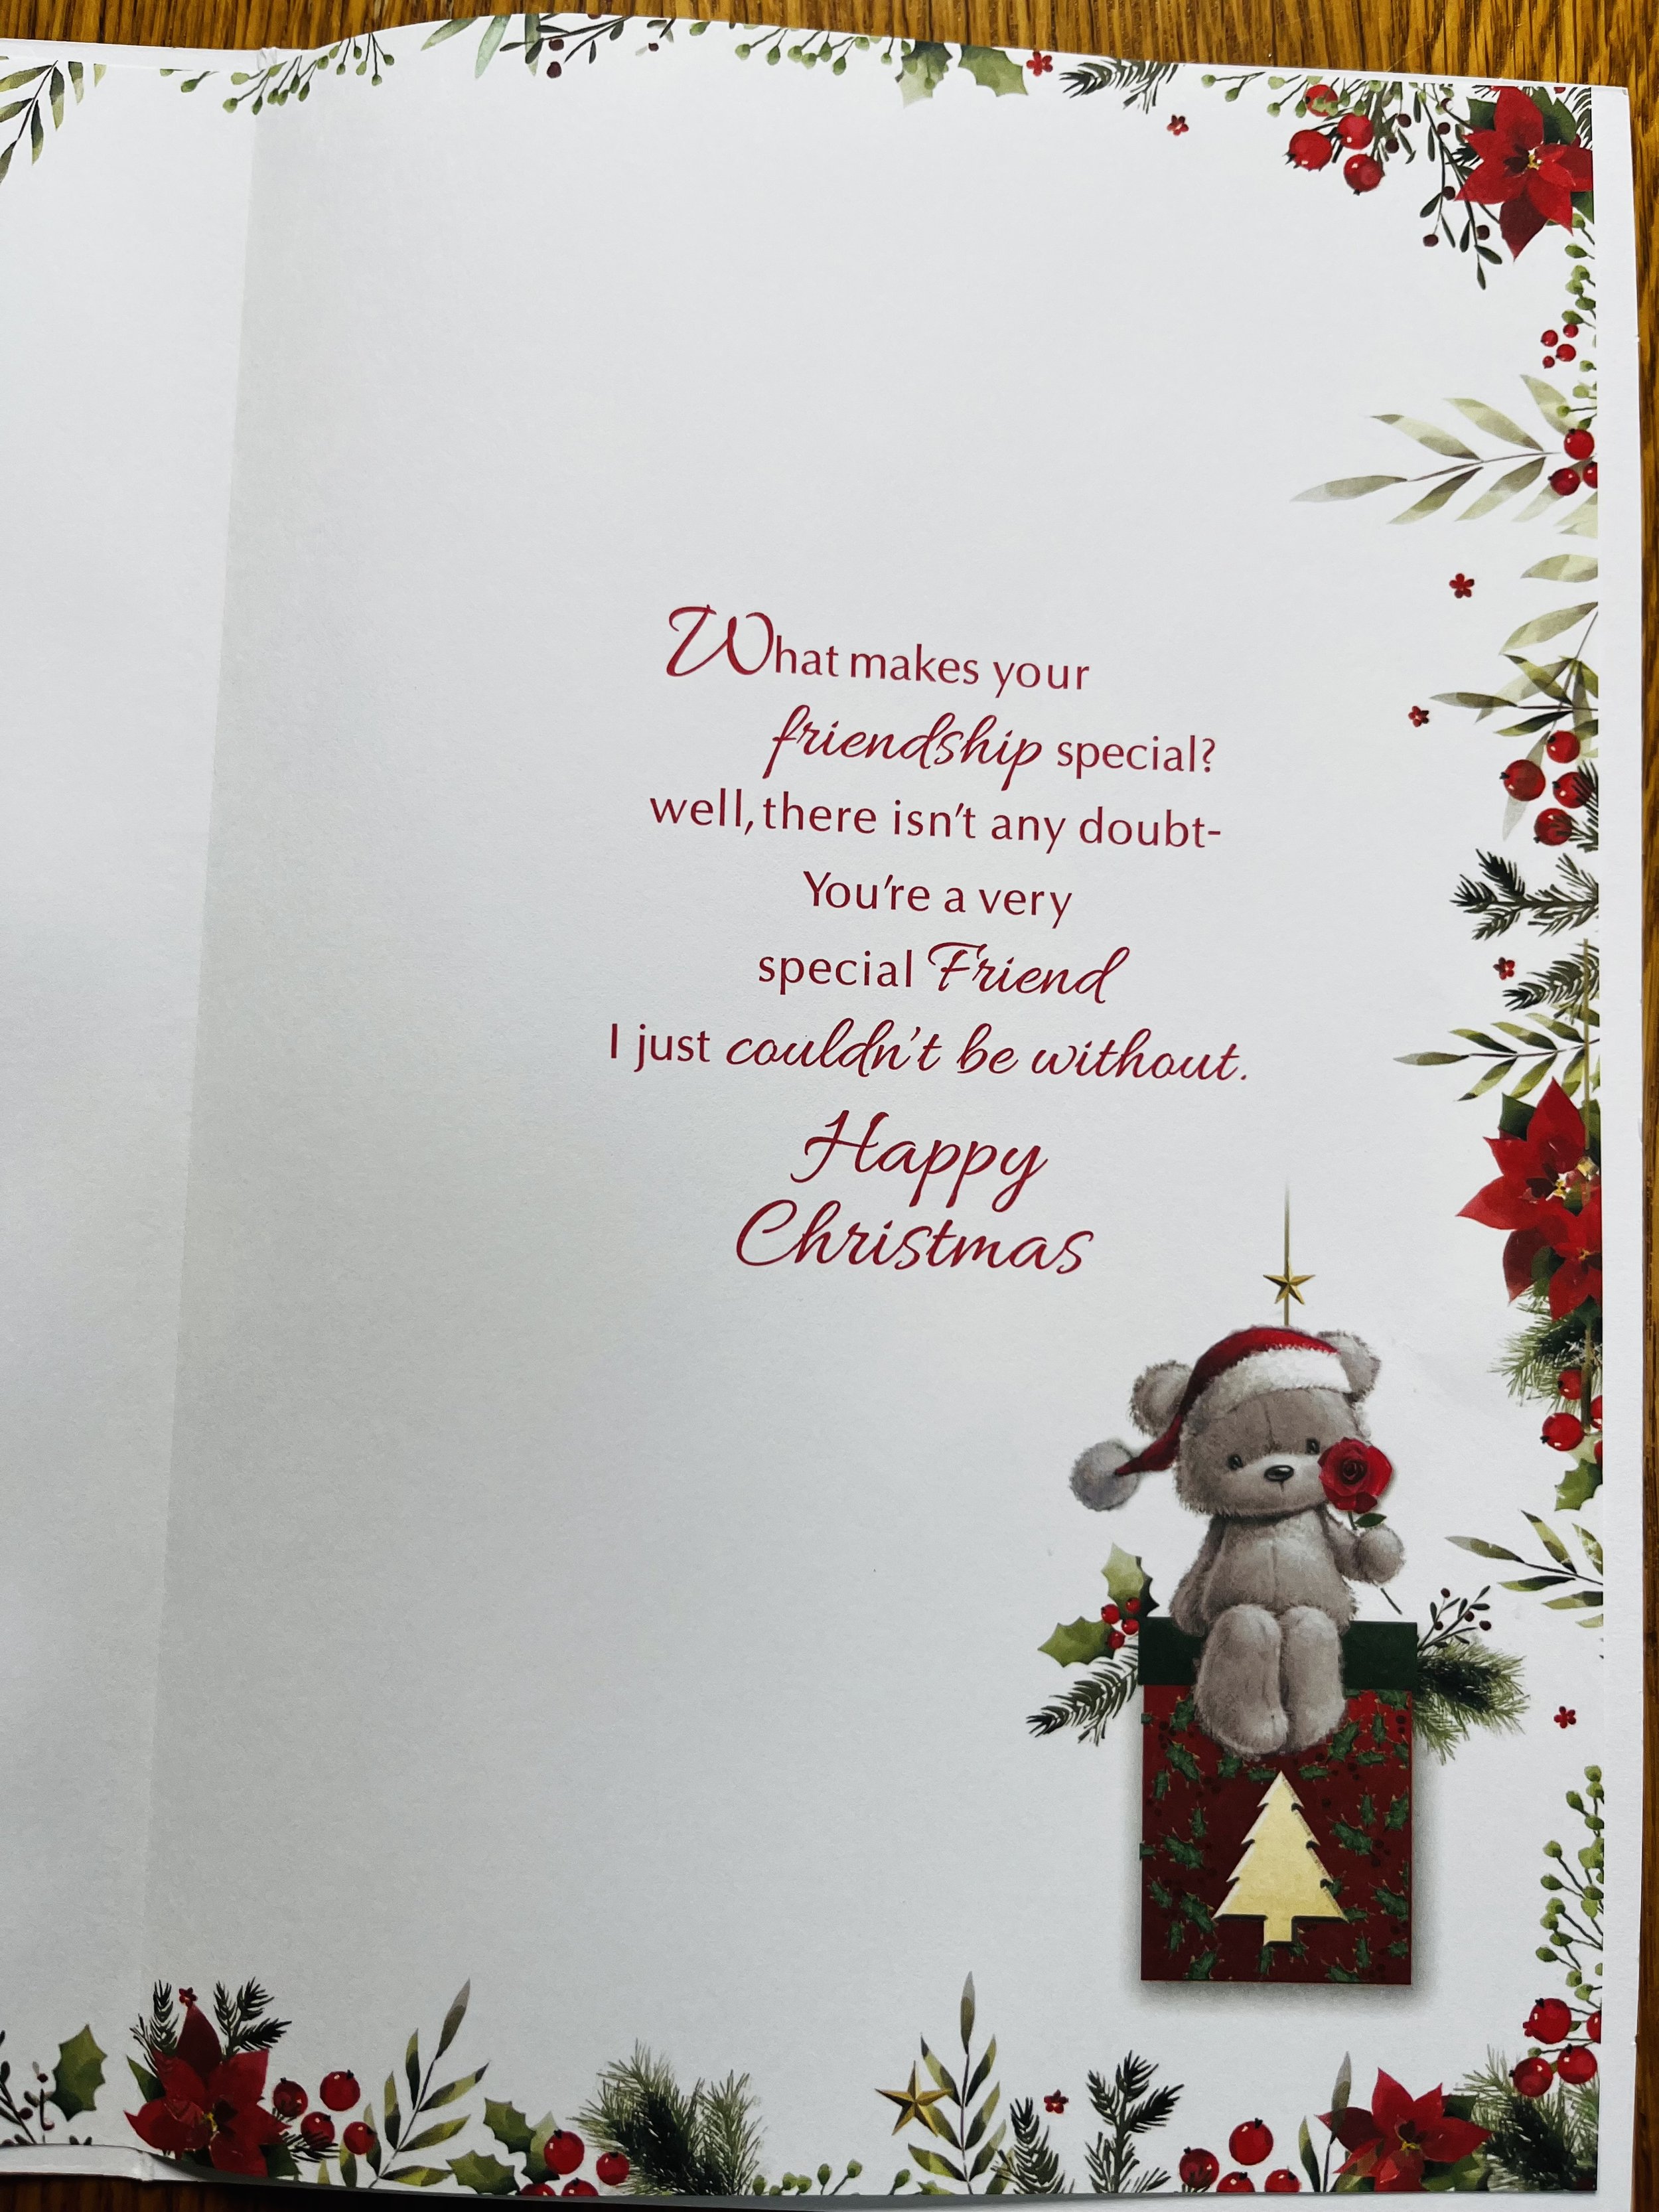 What makes your
friendship special?
well, there isn't any doubt-
You're a very
special Friend
I just couldn't be without.
Happy
Christmas